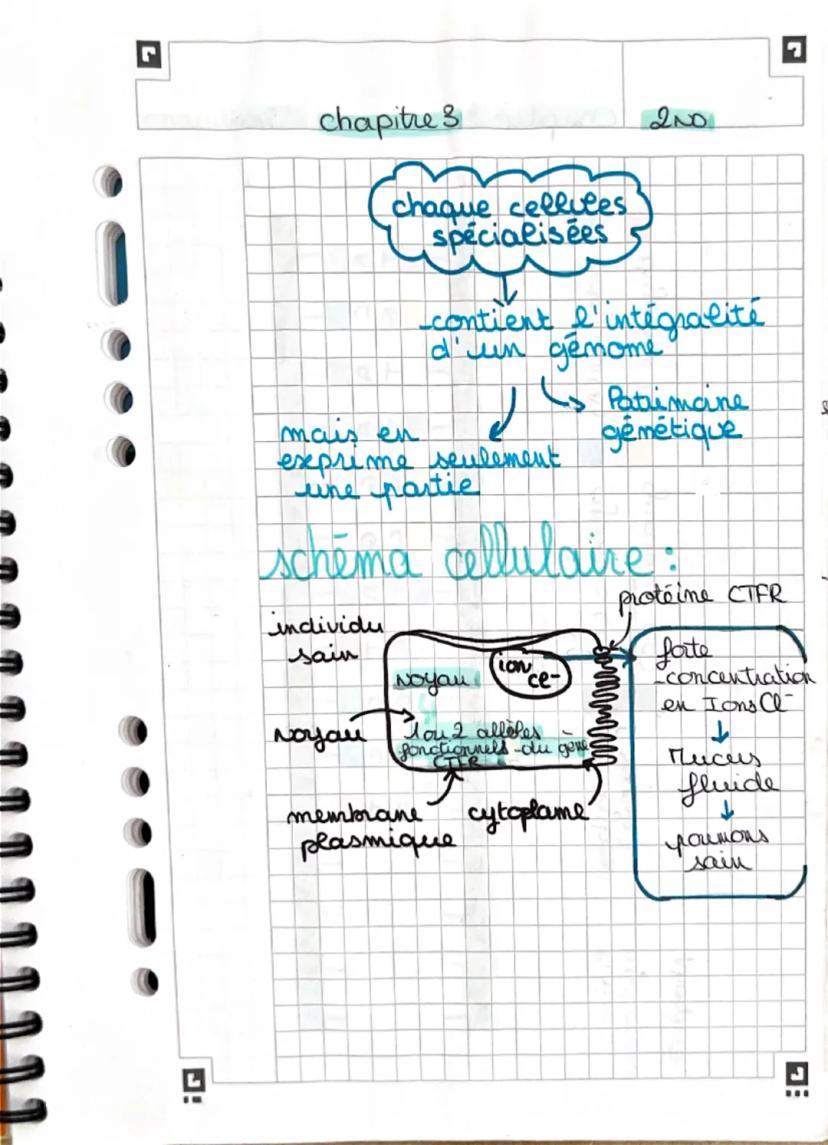 chapitre 3
2ND
chaque cellules
spécialisées
contient l'intégralité
d'un génome
Patrimoine
génétique
mais en
exprime seulement
une partie
schéma cellulaire :
protéine CTFR
individu
sain
ion
cl-
noyau
Noyau
1 ou 2 allèles
fonctionnels du gène
CTFR
membrane
plasmique
cytoplame
forte
concentration
en Ions Cl-
Mucus
fluide
poumons
sain